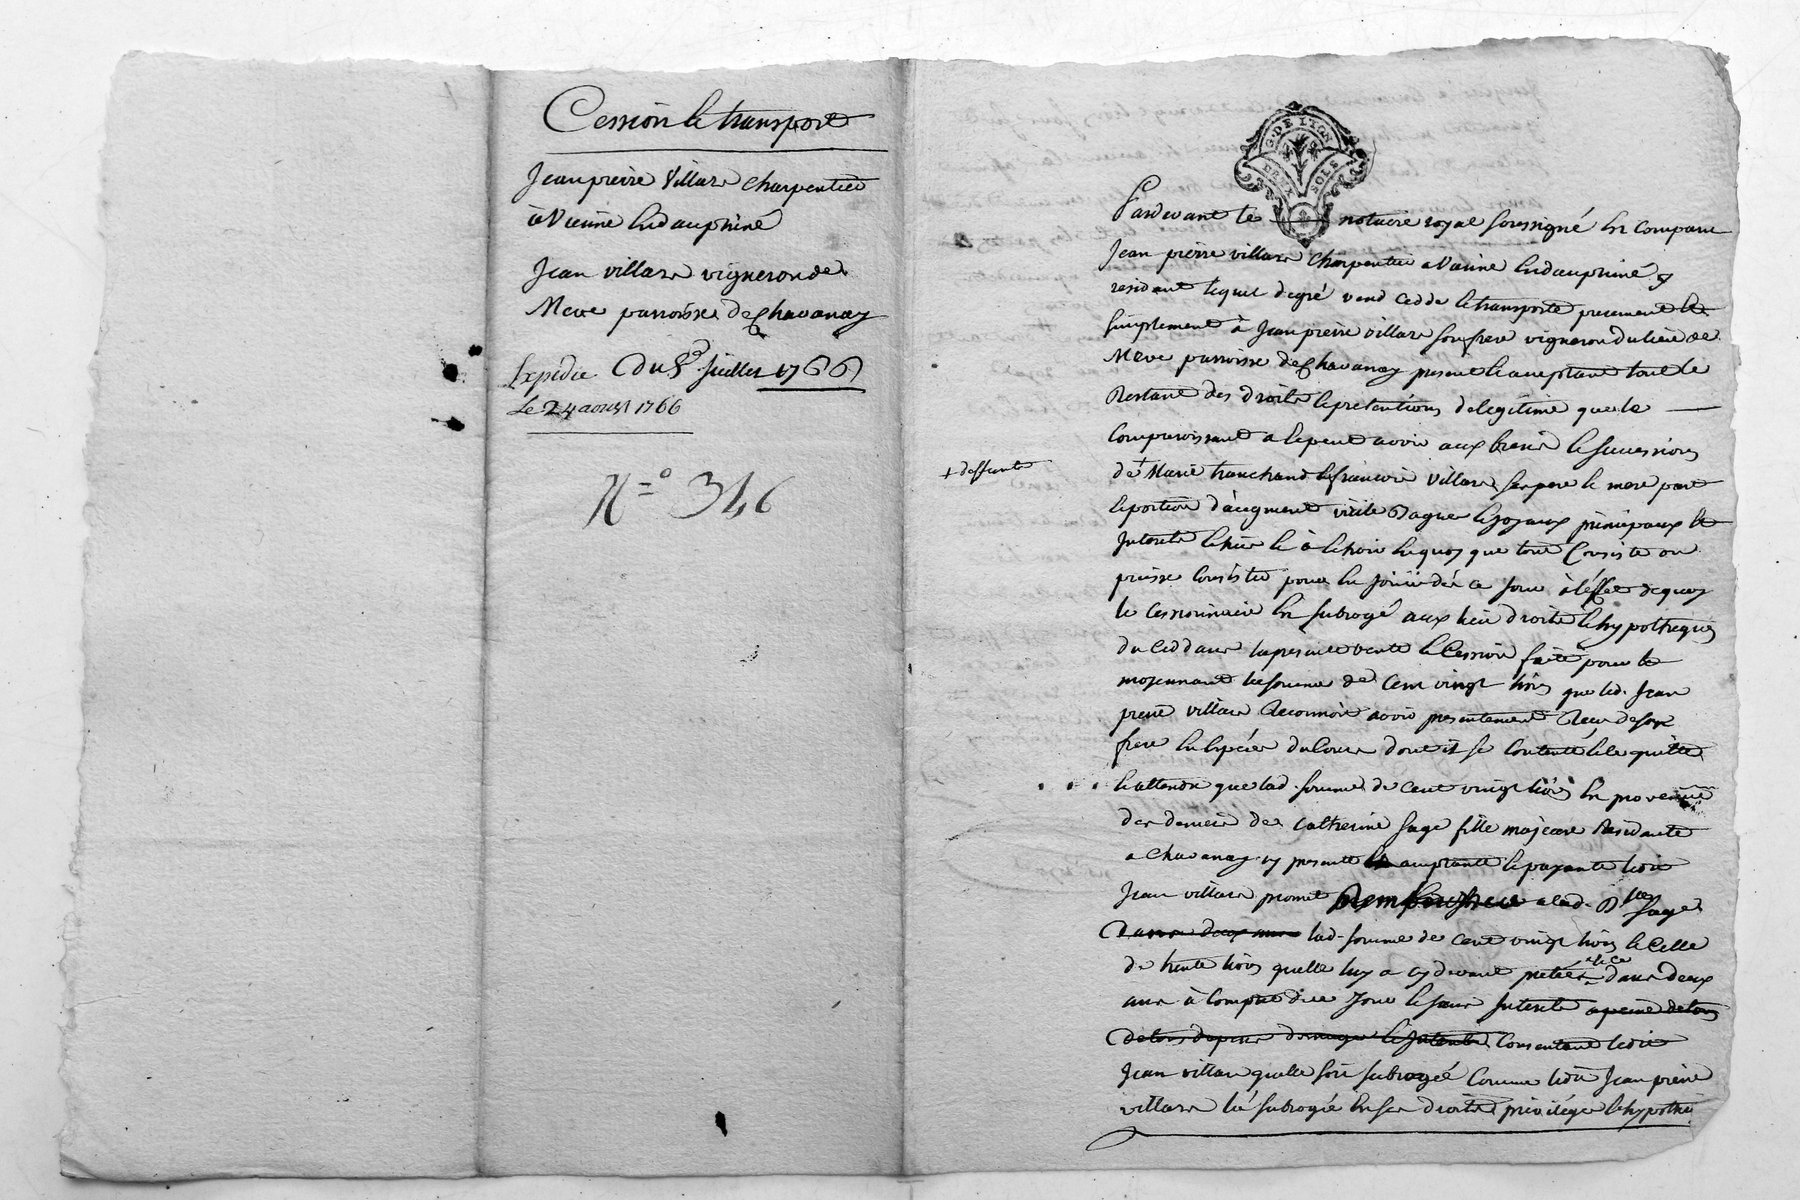 Cession & transport
Jean pierre Villars charpentier
à Vienne En dauphiné
Jean villars vigneron de
Meve parroisse de Chavanay
Du 8 Juillet 1766
Expediée
Le 24 aoust 1766
N.o 346
G. DE LYON
DEUX SOLS
Pardevant le notaire royal soussigné En comparu
Jean pierre villars charpentier a Vienne En dauphiné y
residant lequel de gré vend cedde & transporte purement &
simplement à Jean pierre villars son frere vigneron du lieu de
Meve parroisse de Chavanay present & acceptant tout le
Restant des droits & pretentions de legitime que le
Comparoissant a & peut avoir aux biens & successions
de + Marie tranchand & francois villars ses pere & mere part
+ deffunts
& portion d'augment virile Bagues & joyaux principaux &
Interets & en quoy que tout Consiste ou
puisse Consister pour En Jouir dès ce jour à l'effet de quoy
le cessionnaire En subrogé aux lieu droits & hypotheques
du Ceddant la presente vente & Cession faite pour &
moyennant la somme de Cent vingt livres que led. Jean
pierre villars Reconnoit avoir presentement Receu de son
frere En Espèces du Cours dont il se Contente & le quitte
& attendu que lad. somme de Cent vingt livres En provenüe
des deniers de Catherine Sage fille majeure Residante
a Chavanay cy presente acceptante & payante ledit
Jean villars promet Rembourser a lad. Dlle Sage
Dans deux ans lad. somme de Cent vingt livres & Celle
de trente livres quelle luy a cy devant pretée & ce dans deux
ans à Compter de ce Jour & sans Interets a peine de tous
De tous depens domages & Interets Consentant ledit
Jean villars quelle soit subrogée Comme ledit Jean pierre
villars l'a subrogé En ses droits privileges & hypothe